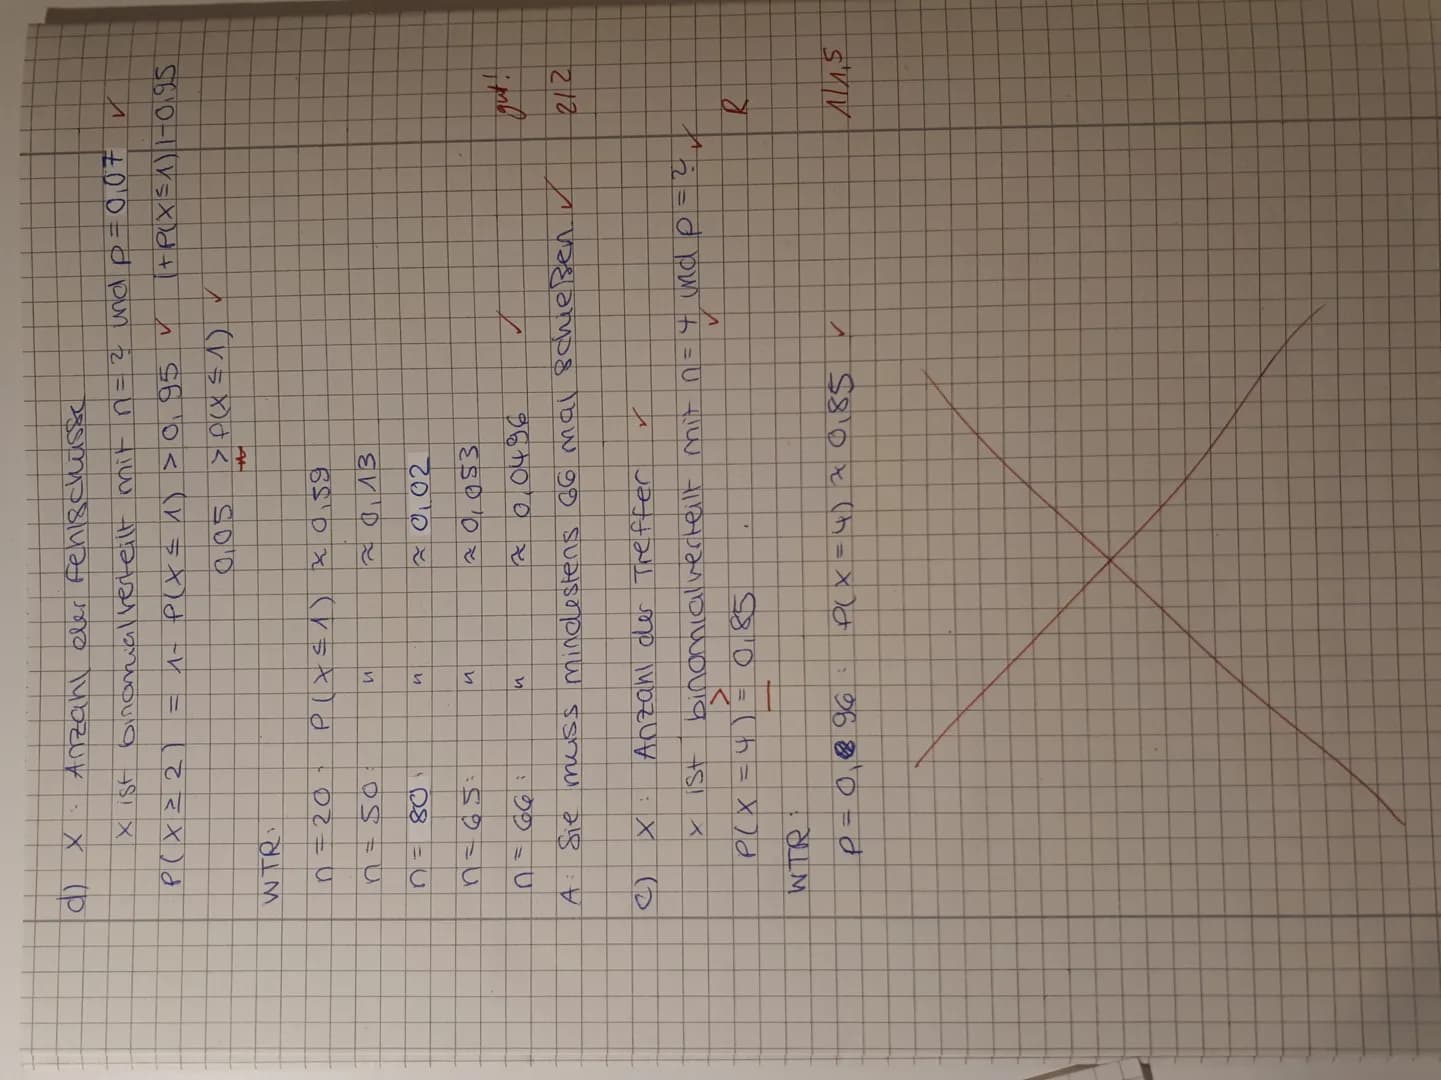 d) X: Anzahl der Fehlschüsse
X ist binomialverteilt mit n=? und p=0,07 ✓
P(X≥2) = 1-P(X≤1) > 0,95 ✓ |+P(X≤1)|-0,95
0,05 > P(X≤1) ✓
WTR:
n=20: P(X≤1) ≈ 0,59
n=50: " ≈ 0,13
n=80: " ≈ 0,02
n=65: " ≈ 0,053
n=66: " ≈ 0,0496 ✓ gut!
A: Sie muss mindestens 66 mal schießen ✓ 2/2
c) X: Anzahl der Treffer ✓
X ist binomialverteilt mit n=4 ✓ und p=? ✓
P(X=4) ≥ 0,85 R
WTR:
p=0,96: P(X=4) ≈ 0,85 ✓ 1/1,5